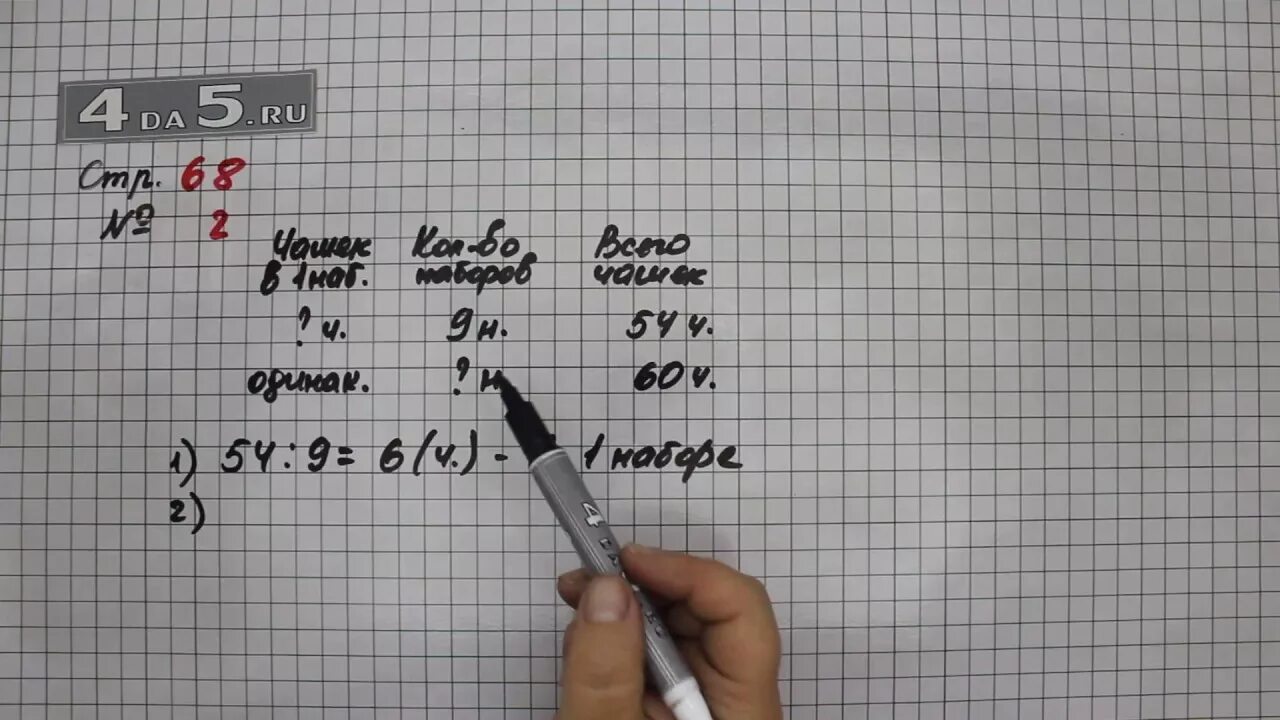 4 DA 5.RU
Стр. 68
№ 2
Чашек Кол-во Всего
в 1 наб. наборов чашек
? ч. 9 н. 54 ч.
одинак. ? н 60 ч.
1) 54 : 9 = 6 (ч.) - 1 наборе
2)